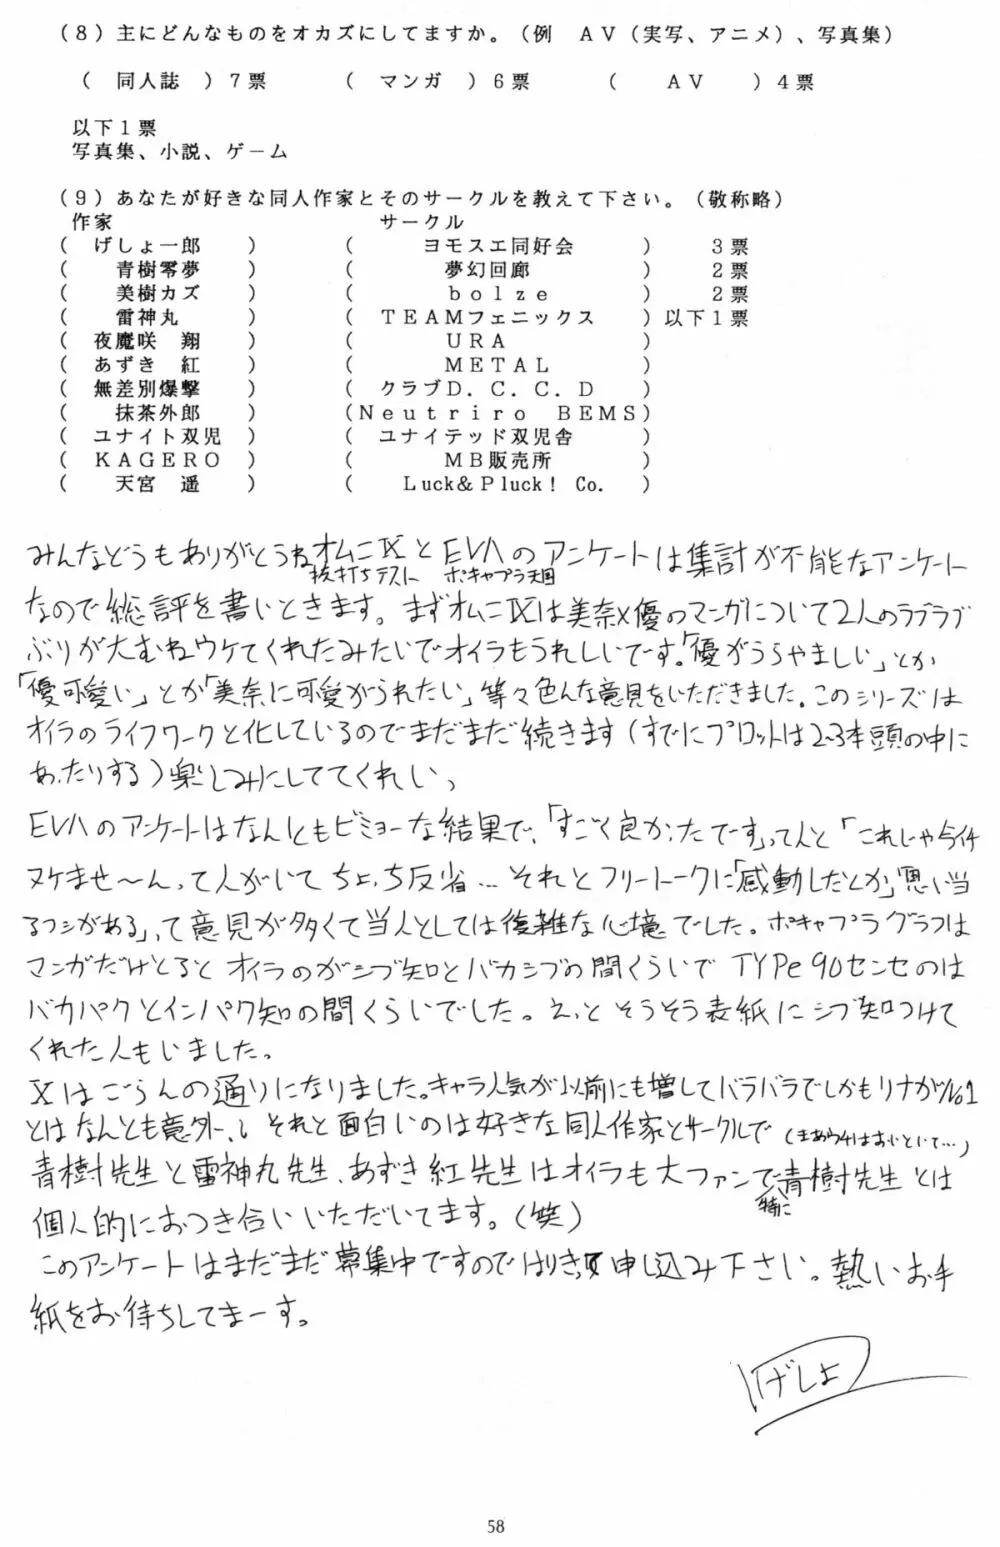 （８）主にどんなものをオカズにしてますか。（例　ＡＶ（実写、アニメ）、写真集）
（　同人誌　）７票　（　マンガ　）６票　（　ＡＶ　）４票
以下１票
写真集、小説、ゲーム
（９）あなたが好きな同人作家とそのサークルを教えて下さい。（敬称略）
作家　サークル
（　げしょ一郎　）　（　ヨモスエ同好会　）　３票
（　青樹零夢　）　（　夢幻回廊　）　２票
（　美樹カズ　）　（　ｂｏｌｚｅ　）　２票
（　雷神丸　）　（　ＴＥＡＭフェニックス　）以下１票
（　夜魔咲　翔　）　（　ＵＲＡ　）
（　あずき　紅　）　（　ＭＥＴＡＬ　）
（　無差別爆撃　）　（　クラブＤ．Ｃ．Ｃ．Ｄ　）
（　抹茶外郎　）　（Ｎｅｕｔｒｉｒｏ　ＢＥＭＳ）
（　ユナイト双児　）　（　ユナイテッド双児舎　）
（　ＫＡＧＥＲＯ　）　（　ＭＢ販売所　）
（　天宮　遥　）　（　Ｌｕｃｋ＆Ｐｌｕｃｋ！Ｃｏ．　）
みんなどうもありがとうねオムニⅨとEVAのアンケートは集計が不能なアンケート
抜打ちテスト　ボキャブラ天国
なので総評を書いときます。まずオムニⅨは美奈×優のマンガについて2人のラブラブ
ぶりが大むねウケてくれたみたいでオイラもうれしいです。「優がうらやましい」とか
「優可愛い」とか「美奈に可愛がられたい」等々色んな意見をいただきました。このシリーズは
オイラのライフワークと化しているのでまだまだ続きます（すでにプロットは2~3本頭の中に
あったりする）楽しみにしててくれいっ
EVAのアンケートはなんともビミョーな結果で、「すごく良かったです」って人と「これじゃ今イチ
ヌケませ〜ん」って人がいてちょっち反省…それとフリートークに「感動したとか」「思い当
るフシがある」って意見が多くて当人としては複雑な心境でした。ボキャブラグラフは
マンガだけとるとオイラのがシブ知とバカシブの間くらいでTYPe90センセのは
バカパクとインパク知の間くらいでした。えっとそうそう表紙にシブ知つけて
くれた人もいました。
Ⅹはごらんの通りになりました。キャラ人気が以前にも増してバラバラでしかもリナがNo1
とはなんとも意外っ、それと面白いのは好きな同人作家とサークルで（まあウチはおいといて…）
青樹先生と雷神丸先生、あずき紅先生はオイラも大ファンで青樹先生とは
特に
個人的におつき合いいただいてます。（笑）
このアンケートはまだまだ募集中ですのではりきって申し込み下さい。熱いお手
紙をお待ちしてまーす。
げしょ
58